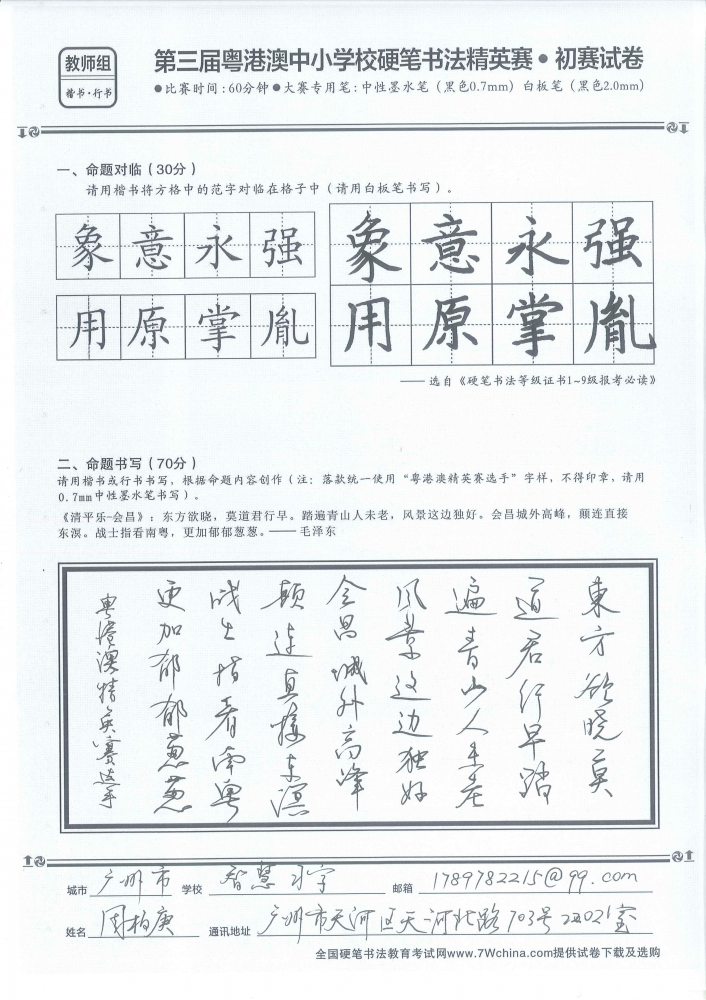 教师组
楷书·行书
第三届粤港澳中小学校硬笔书法精英赛•初赛试卷
●比赛时间:60分钟●大赛专用笔:中性墨水笔(黑色0.7mm) 白板笔(黑色2.0mm)
一、命题对临(30分)
请用楷书将方格中的范字对临在格子中(请用白板笔书写)。
象意永强
用原掌胤
象意永强
用原掌胤
——选自《硬笔书法等级证书1~9级报考必读》
二、命题书写(70分)
请用楷书或行书书写,根据命题内容创作(注:落款统一使用“粤港澳精英赛选手”字样,不得印章,请用
0.7mm中性墨水笔书写)。
《清平乐-会昌》:东方欲晓,莫道君行早。踏遍青山人未老,风景这边独好。会昌城外高峰,颠连直接
东溟。战士指看南粤,更加郁郁葱葱。——毛泽东
東方欲晓莫
道君行早踏
遍青山人未老
风景这边独好
会昌城外高峰
颠连直接东溟
战士指看南粤
更加郁郁葱葱
粤港澳精英赛选手
城市 广州市 学校 智慧习字 邮箱 1789782215@qq.com
姓名 周柏庚 通讯地址 广州市天河区天河北路703号22021室
全国硬笔书法教育考试网www.7Wchina.com提供试卷下载及选购